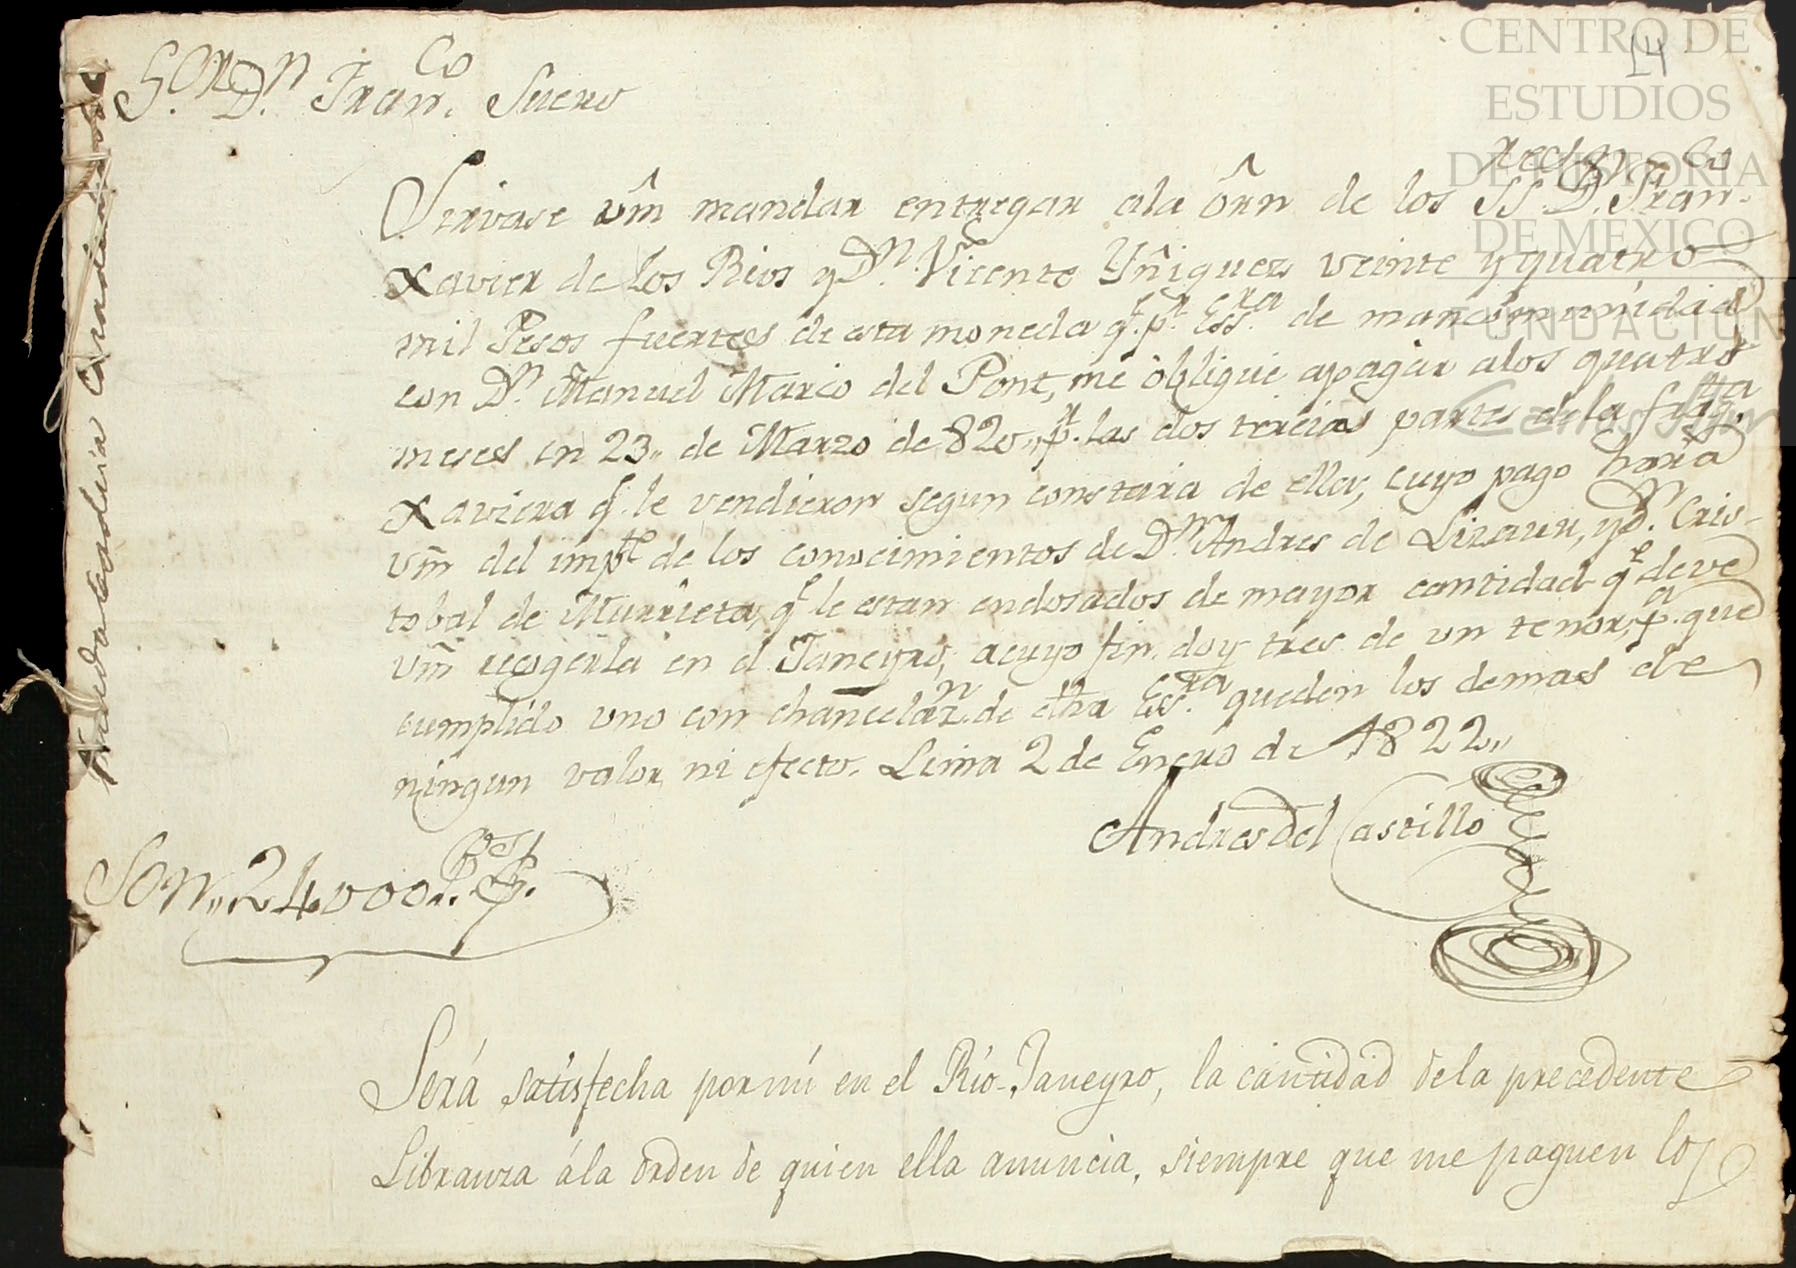 14
S.or D.n Fran.co Suero
Sirvase vm̃ mandar entregar ala ôrn de los SS. D.n Fran.co
Xavier de los Rios y D.n Vicente Yñiguez veinte y quatro
mil Pesos fuertes de esta moneda q.e p.r Ess.ra de mancomunidad
con D.n Manuel Marco del Pont, me obligué apagar alos quatro
meses en 23,, de Marzo de 820,, p.r las dos tercias partes de la frag.ta
Xaviera q.e le vendieron segun constara de ella, cuyo pago hará
vm̃ del imp.te de los conocimientos de D.n Andres de Lizaur, y D.n Cris-
tobal de Murrieta, q.e le estan endosados de mayor cantidad q.e deve
vm̃ recogerla en el Janeyro, acuyo fin doy tres de un tenor, p.a que
cumplido uno con chancelaz.n de dha Ess.ra queden los demas de
ningun valor ni efecto. Lima 2 de Enero de 1822,,
Andres del Castillo
Son,, 24000,, P.s F.s
Será satisfecha por mi en el Rio-Janeyro, la cantidad dela precedente
Libranza ála orden de quien ella anuncia, siempre que me paguen los
CENTRO DE
ESTUDIOS
DE HISTORIA
DE MÉXICO
FUNDACIÓN
Carlos Slim